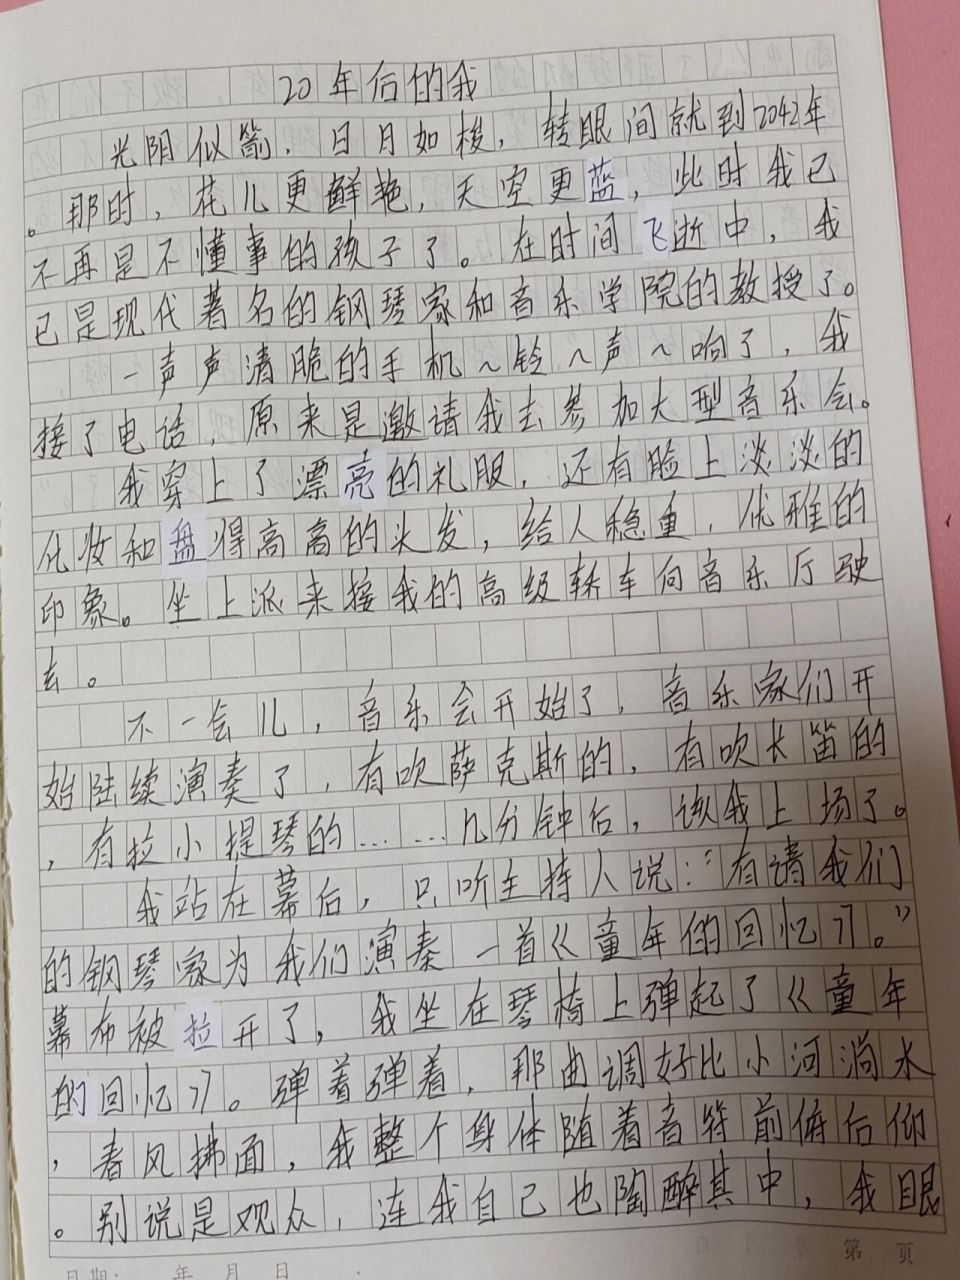 20年后的我
光阴似箭，日月如梭，转眼间就到2042年
。那时，花儿更鲜艳，天空更蓝，此时我已
不再是不懂事的孩子了。在时间飞逝中，我
已是现代著名的钢琴家和音乐学院的教授了。
一声声清脆的手机～铃～声～响了，我
接了电话，原来是邀请我去参加大型音乐会。
我穿上了漂亮的礼服，还有脸上淡淡的
化妆和盘得高高的头发，给人稳重，优雅的
印象。坐上派来接我的高级轿车向音乐厅驶
去。
不一会儿，音乐会开始了，音乐家们开
始陆续演奏了，有吹萨克斯的，有吹长笛的
，有拉小提琴的……几分钟后，该我上场了。
我站在幕后，只听主持人说：“有请我们
的钢琴家为我们演奏一首《童年的回忆》。”
幕布被拉开了，我坐在琴椅上弹起了《童年
的回忆》。弹着弹着，那曲调好比小河淌水
，春风拂面，我整个身体随着音符前俯后仰
。别说是观众，连我自己也陶醉其中，我眼
第 页
日期： 年 月 日